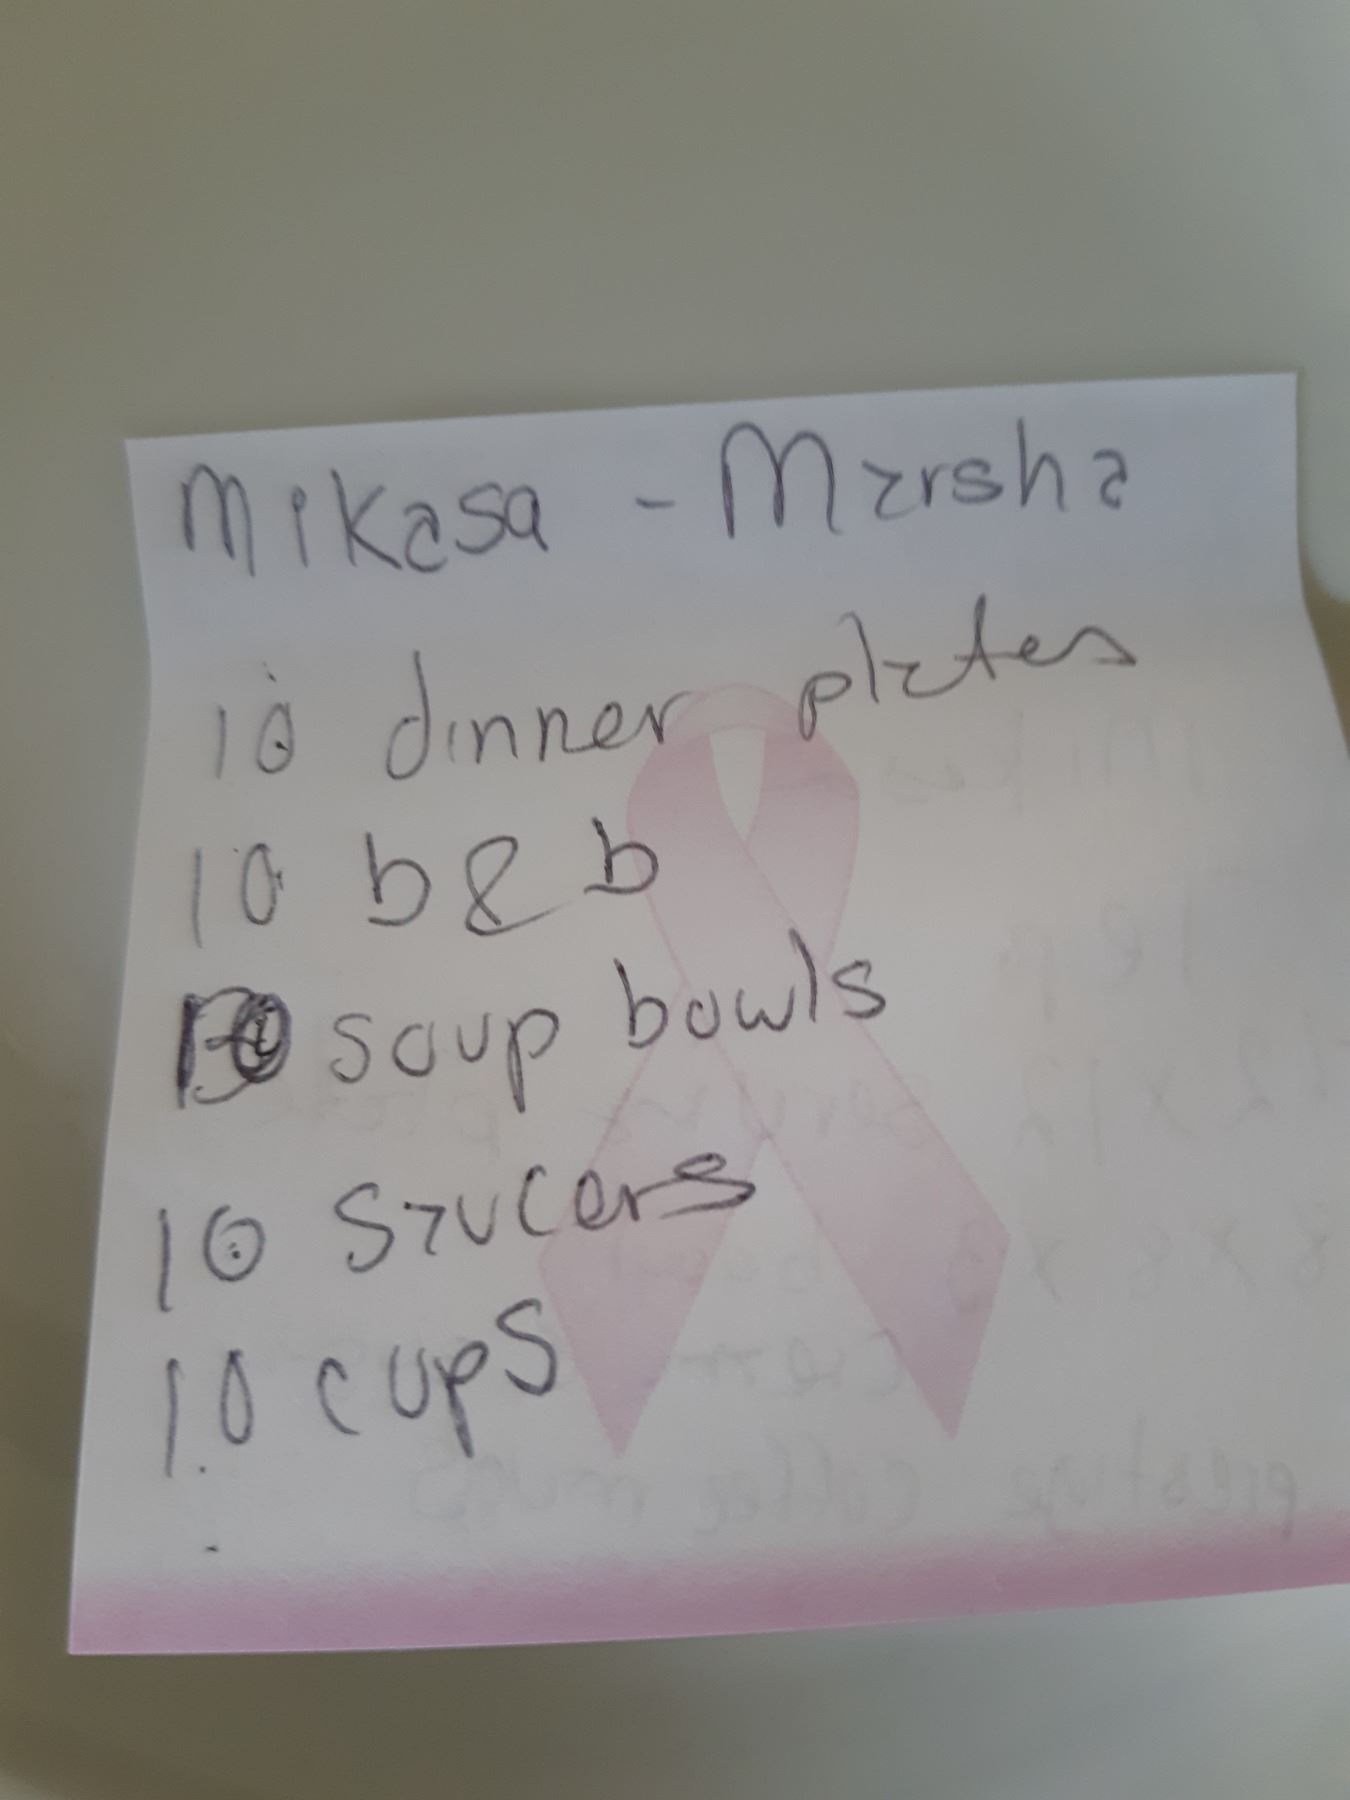 Mikasa - Marsha
10 dinner plates
10 b & b
10 soup bowls
10 saucers
10 cups